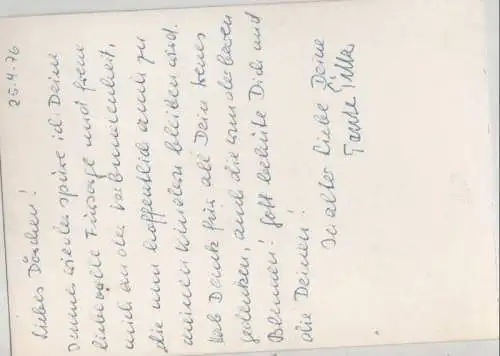 25.4.76
Liebes Döschen!
Immer wieder spüre ich Deine
liebevolle Fürsorge und freue
mich an der Verbundenheit,
die nun hoffentlich auch zu
meinen Kindern bleiben wird.
Hab Dank für all Dein treues
gedenken, auch die wunderbaren
Blumen! Gott behüte Dich und
die Deinen!
In alter Liebe Deine
Tante